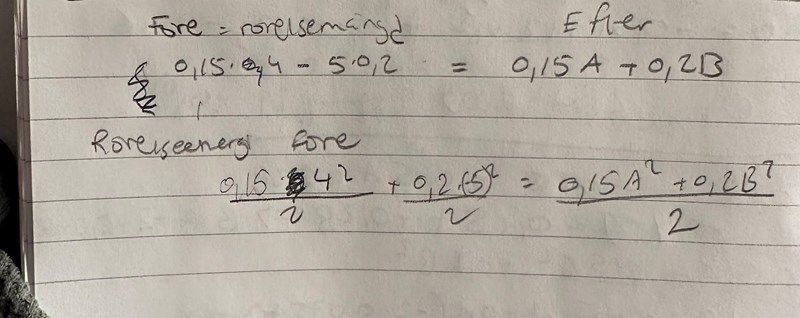 Före = rörelsemängd Efter
0,15·4 - 5·0,2 = 0,15A + 0,2B
Rörelseenergi före
0,15 4² / 2 + 0,2·(5)² / 2 = 0,15A² + 0,2B² / 2